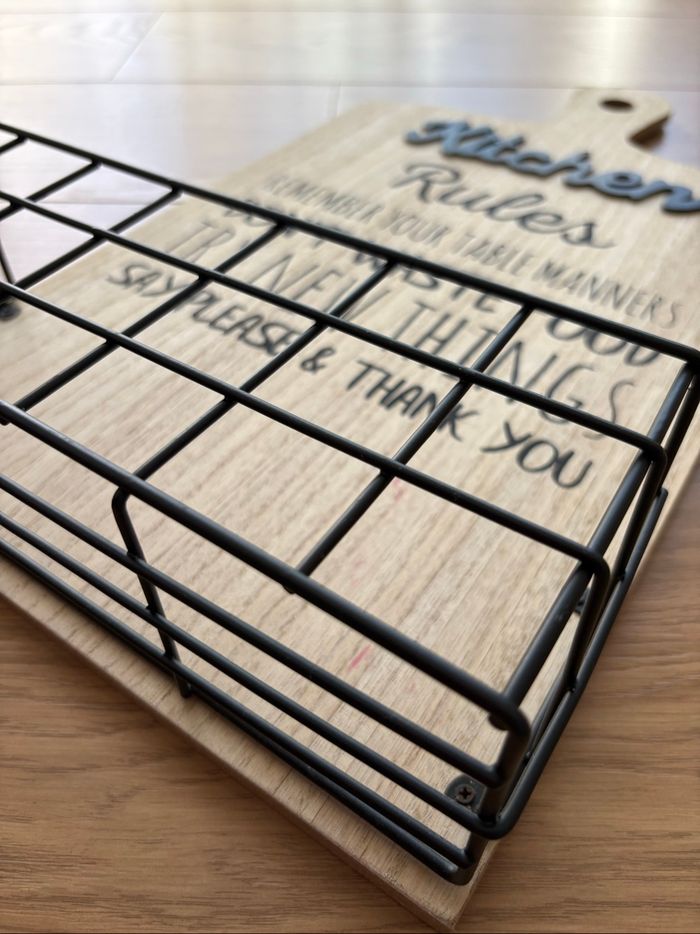 Kitchen
Rules
REMEMBER YOUR TABLE MANNERS
DON'T WASTE FOOD
TRY NEW THINGS
SAY PLEASE & THANK YOU